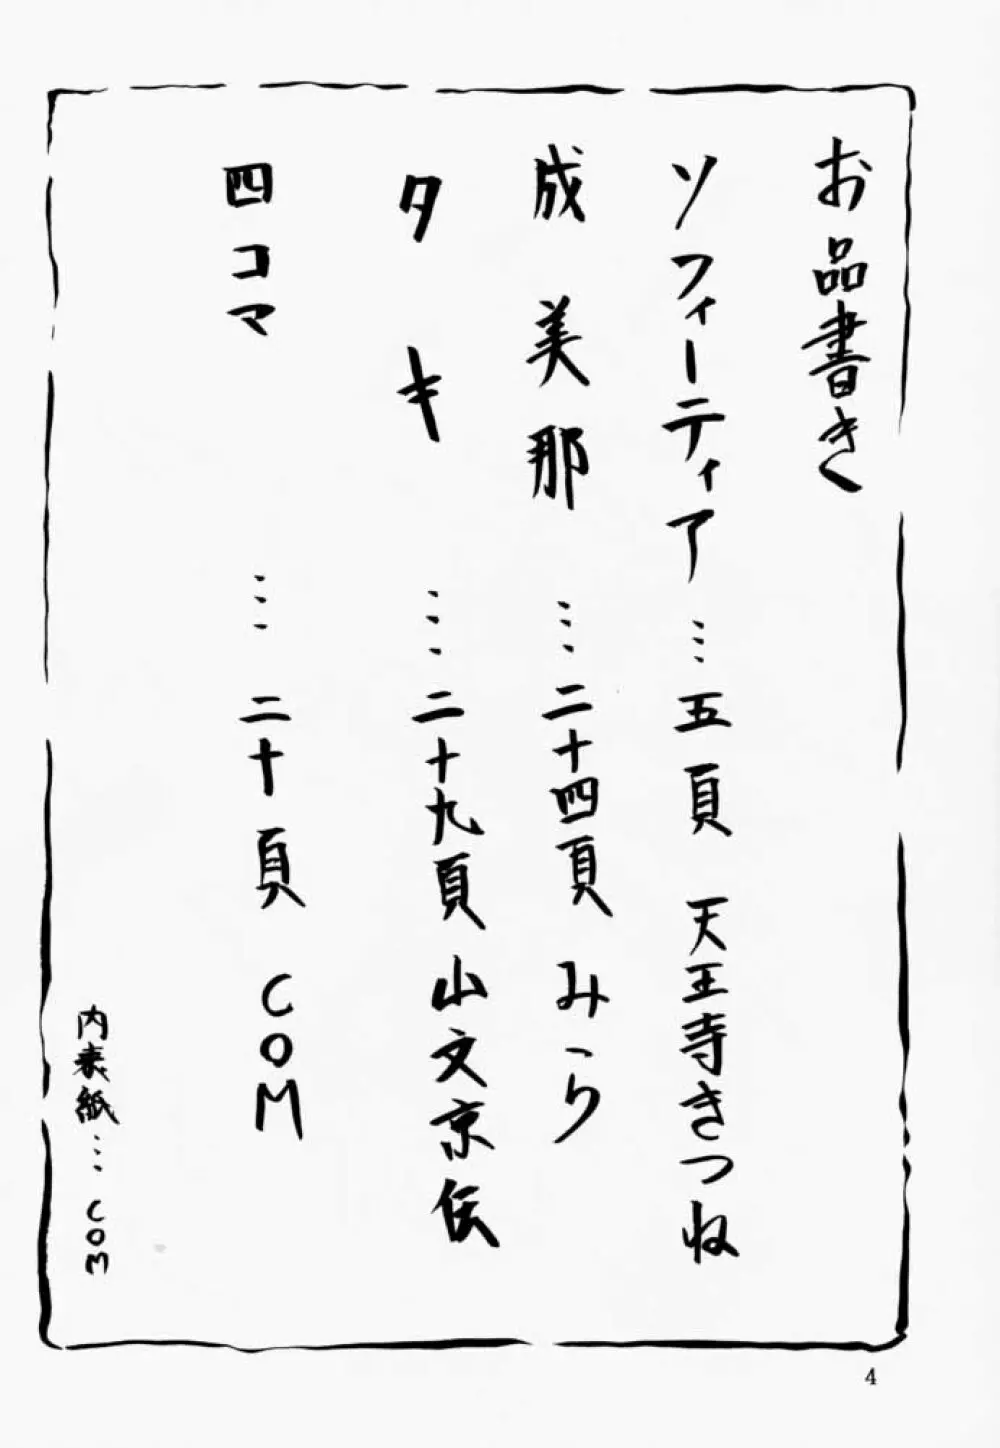 お品書き
ソフィーティア…五頁 天王寺きつね
成美那…二十四頁 みら
タキ…二十九頁 山文京伝
四コマ…二十頁 COM
内表紙…COM
4